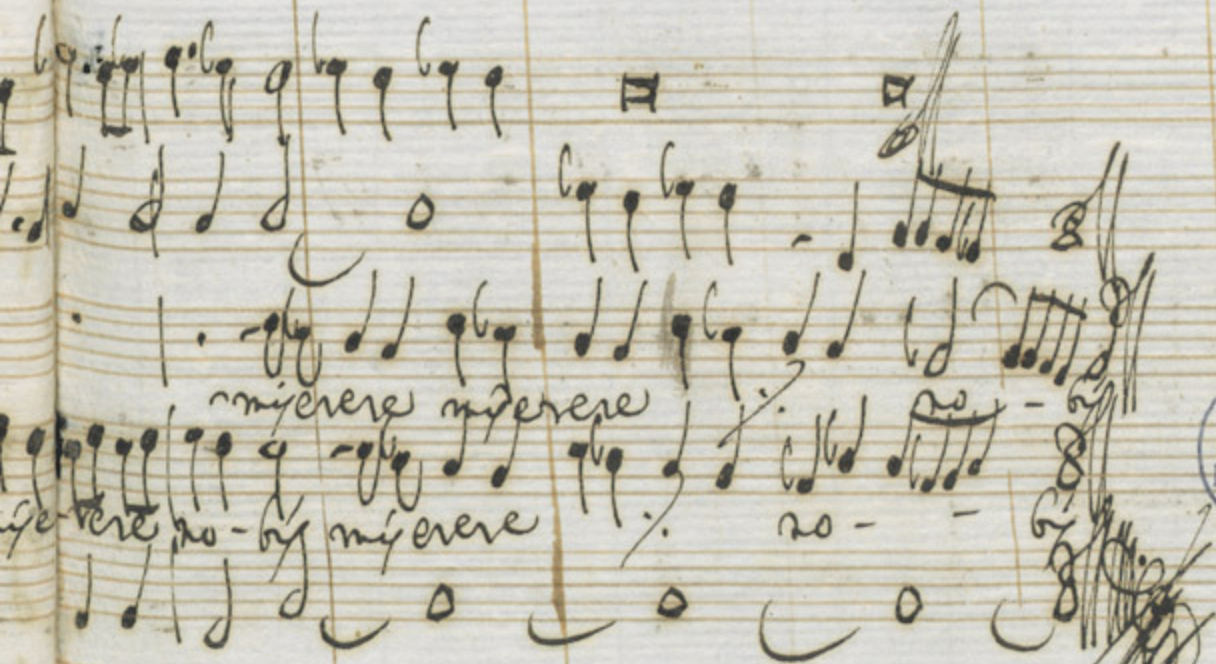 miserere miserere no - bis
miserere no - bis miserere no - - bis